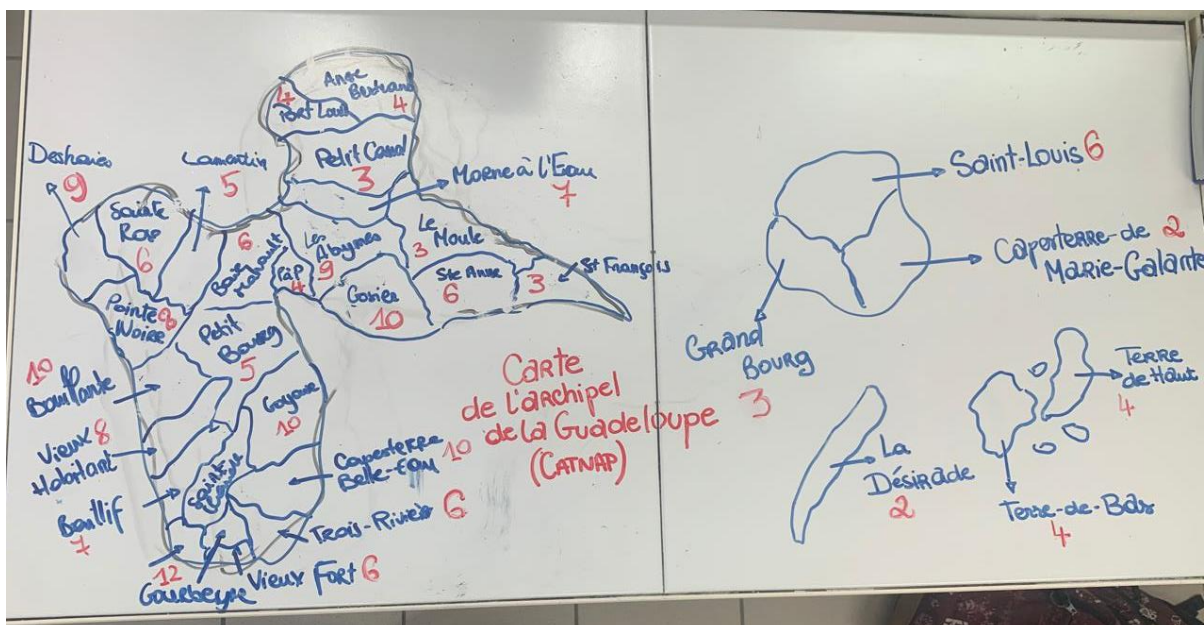 Anse
Bertrand
4
4
Port Louis
Petit Canal
3
Morne à l'Eau
7
Deshaies
9
Lamentin
5
Sainte
Rose
6
6
Baie
Mahault
Les Abymes
9
PàP
4
Le
Moule
3
Ste Anne
6
3
St François
Gosier
10
Pointe
Noire
8
Petit
Bourg
5
10
Bouillante
Vieux 8
Habitant
Goyave
10
Baillif
7
Capesterre 10
Belle-Eau
Trois-Rivière 6
Vieux Fort 6
12
Gourbeyre
Carte
de l'archipel
de la Guadeloupe
(CATNAP)
Saint-Louis 6
Capesterre-de 2
Marie-Galante
Grand
Bourg
3
La
Désirade
2
Terre
de Haut
4
Terre-de-Bas
4